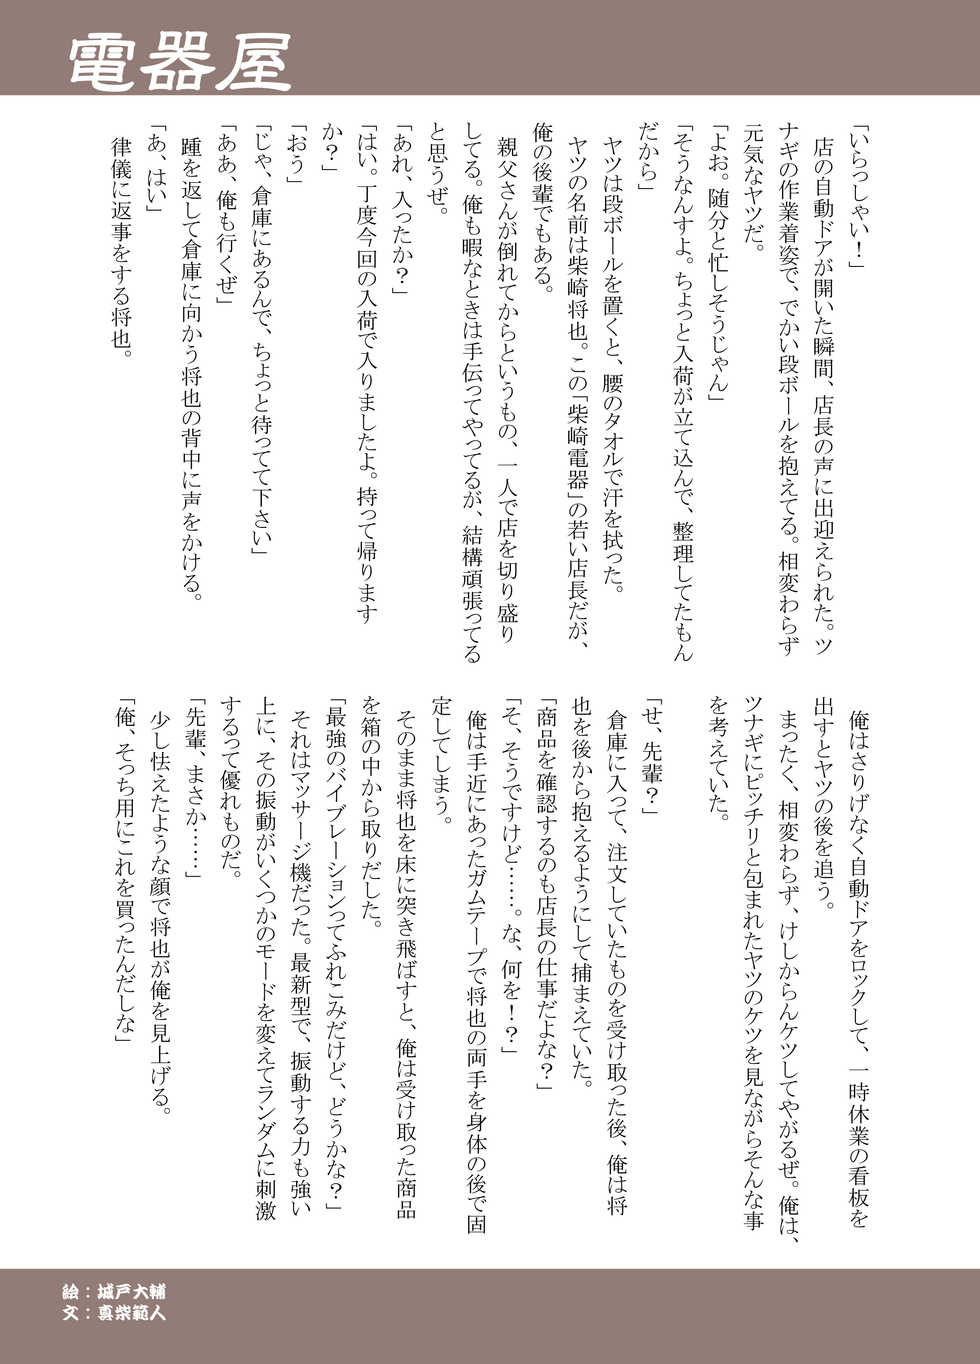 電器屋
「いらっしゃい！」
　店の自動ドアが開いた瞬間、店長の声に出迎えられた。ツ
ナギの作業着姿で、でかい段ボールを抱えてる。相変わらず
元気なヤツだ。
「よお。随分と忙しそうじゃん」
「そうなんすよ。ちょっと入荷が立て込んで、整理してたもん
だから」
　ヤツは段ボールを置くと、腰のタオルで汗を拭った。
　ヤツの名前は柴崎将也。この「柴崎電器」の若い店長だが、
俺の後輩でもある。
　親父さんが倒れてからというもの、一人で店を切り盛り
してる。俺も暇なときは手伝ってやってるが、結構頑張ってる
と思うぜ。
「あれ、入ったか？」
「はい。丁度今回の入荷で入りましたよ。持って帰ります
か？」
「おう」
「じゃ、倉庫にあるんで、ちょっと待ってて下さい」
「ああ、俺も行くぜ」
　踵を返して倉庫に向かう将也の背中に声をかける。
「あ、はい」
　律儀に返事をする将也。
　俺はさりげなく自動ドアをロックして、一時休業の看板を
出すとヤツの後を追う。
　まったく、相変わらず、けしからんケツしてやがるぜ。俺は、
ツナギにピッチリと包まれたヤツのケツを見ながらそんな事
を考えていた。
「せ、先輩？」
　倉庫に入って、注文していたものを受け取った後、俺は将
也を後から抱えるようにして捕まえていた。
「商品を確認するのも店長の仕事だよな？」
「そ、そうですけど……。な、何を！？」
　俺は手近にあったガムテープで将也の両手を身体の後で固
定してしまう。
　そのまま将也を床に突き飛ばすと、俺は受け取った商品
を箱の中から取りだした。
「最強のバイブレーションってふれこみだけど、どうかな？」
　それはマッサージ機だった。最新型で、振動する力も強い
上に、その振動がいくつかのモードを変えてランダムに刺激
するって優れものだ。
「先輩、まさか……」
　少し怯えたような顔で将也が俺を見上げる。
「俺、そっち用にこれを買ったんだしな」
絵：城戸大輔
文：真柴範人